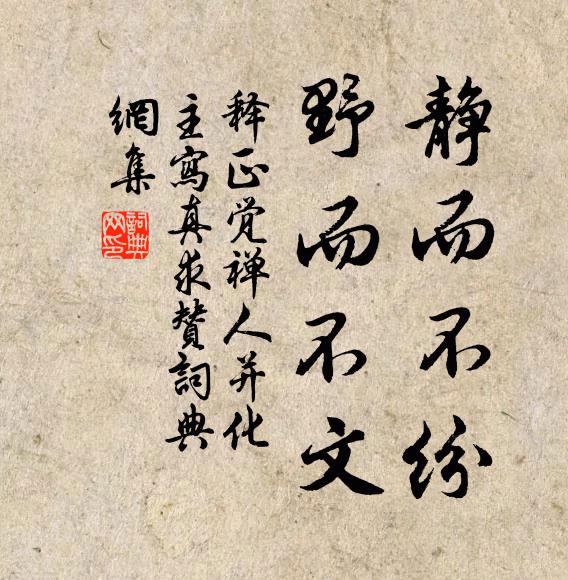 静而不纷
野而不文
释正觉禅人并化
主寫真求贊詞典
網集
詞典网印